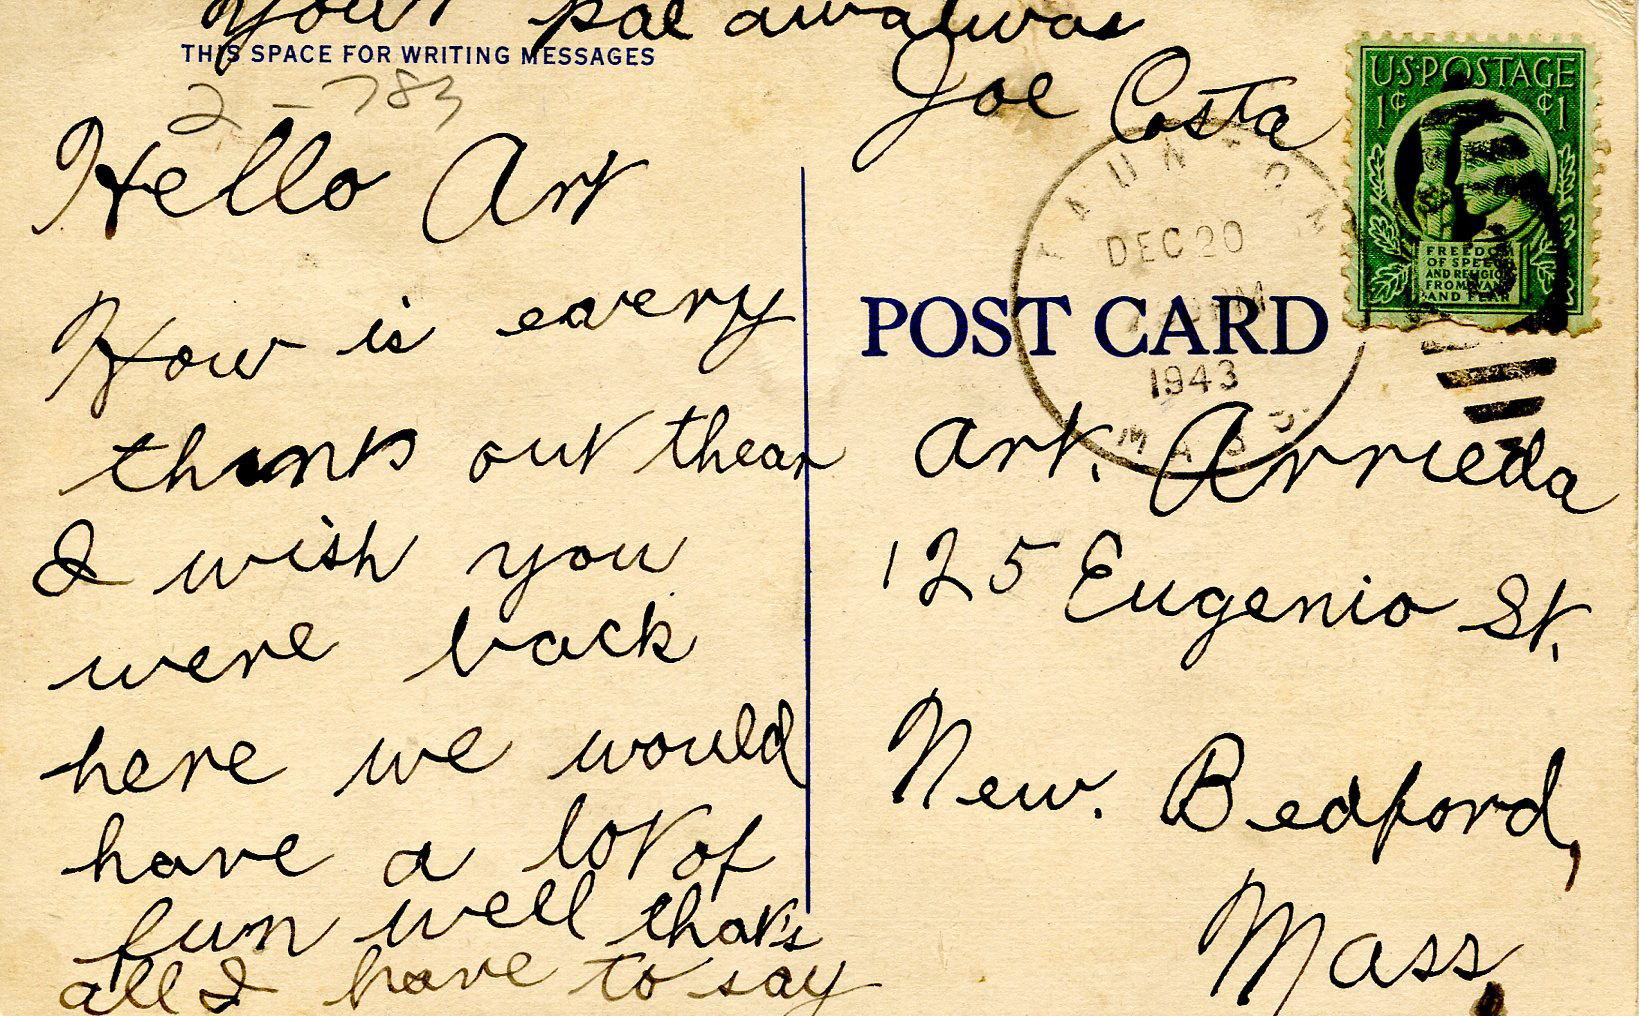 Your pal awalwas
THIS SPACE FOR WRITING MESSAGES
Joe Costa
2-783
Hello Art
How is every
thinks out thear
I wish you
were back
here we would
have a lot of
fun well that's
all I have to say
U.S. POSTAGE
1¢ ¢1
FREEDOM
OF SPEECH
AND RELIGION
FROM WANT
AND FEAR
TAUNTON
DEC 20
PM
1943
MASS.
POST CARD
Art. Arrieda
125 Eugenio St.
New. Bedford,
Mass,